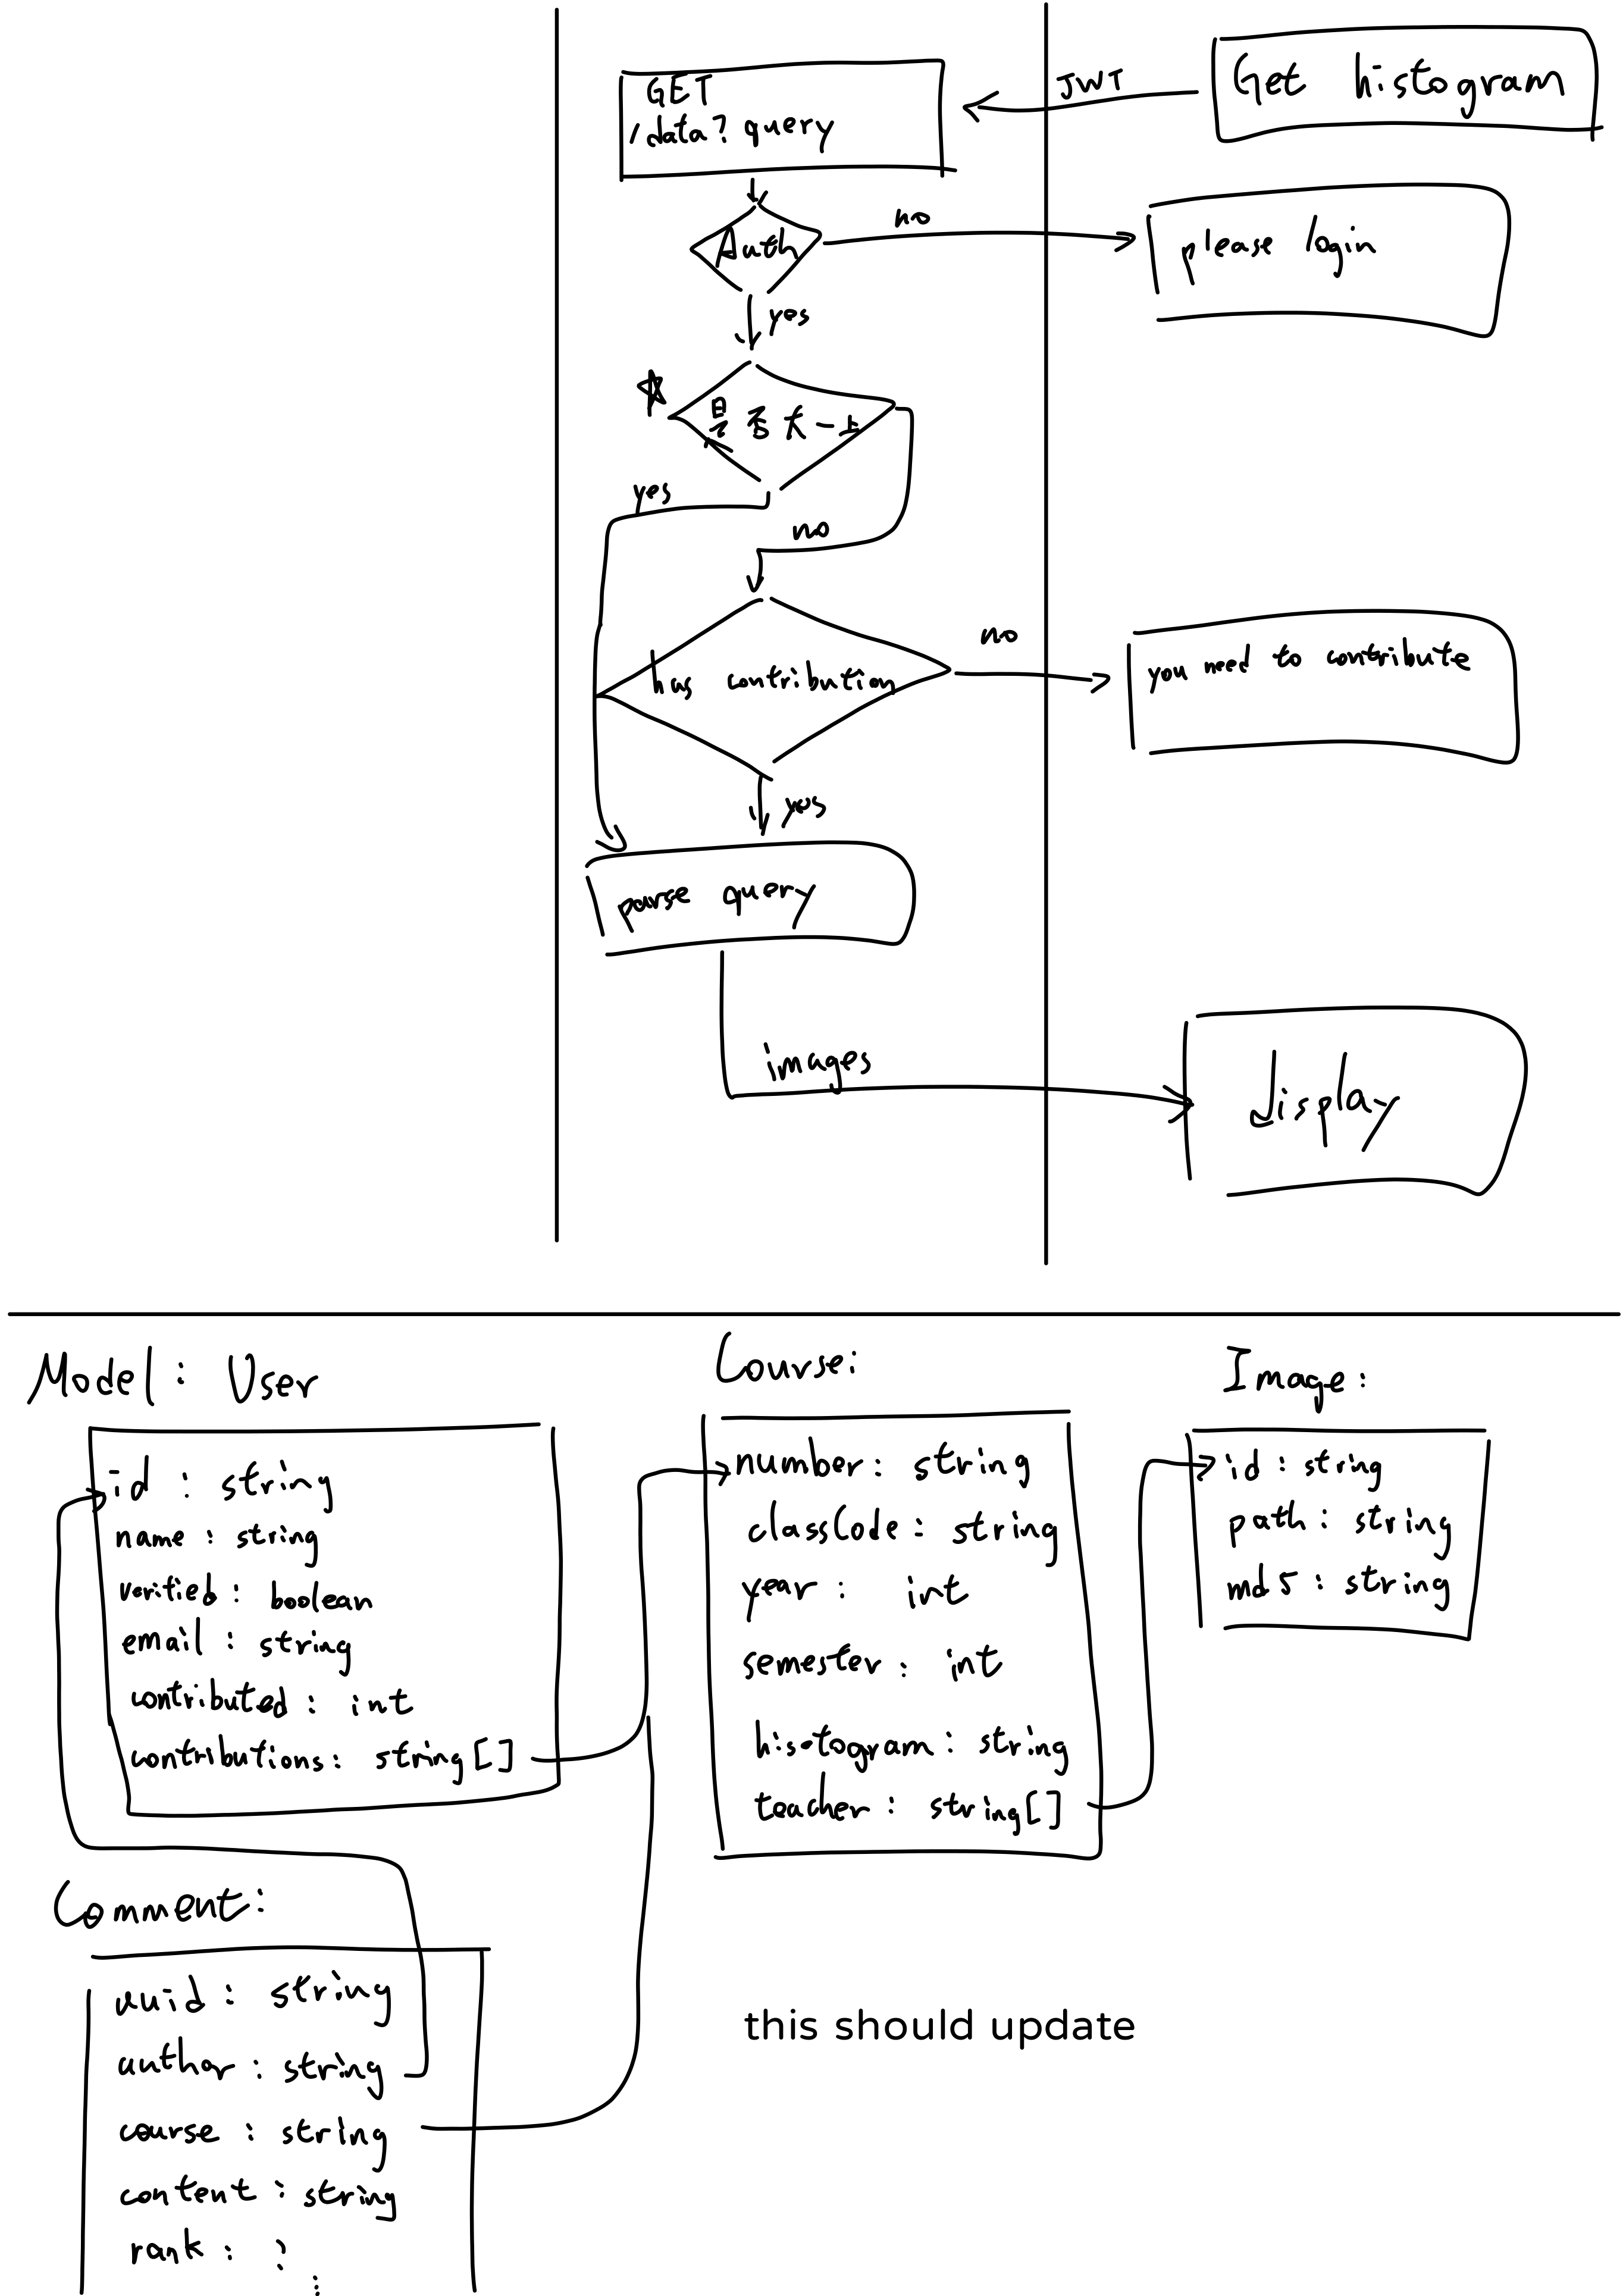 Get histogram
JWT
GET
/data? query
Auth
no
please login
yes
是否大一上
yes
no
has contribution
no
you need to contribute
yes
parse query
images
display
Model: User
id : string
name : string
verified : boolean
email : string
contributed : int
contributions : string[]
Course:
number : string
classCode : string
year : int
semester : int
hisotogram : string
teacher : string[]
Image:
id : string
path : string
md5 : string
Comment:
uuid : string
author : string
course : string
content : string
rank : ?
⋮
this should update